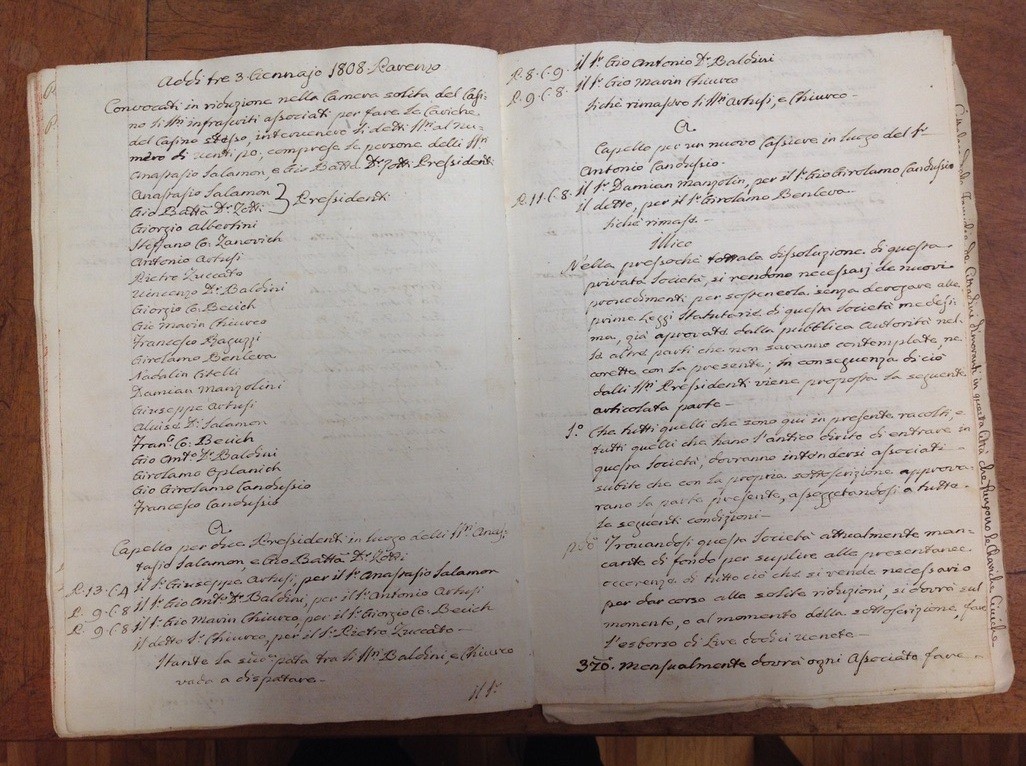 Addi tre 3. Gennajo 1808. Parenzo
Convocati in riduzione nella Camera solita del Casi-
no li Sri infrascriti associati per fare le Cariche
del Casino stesso, intervenero li detti Sri al nu-
mero di venti po, comprese le persone delli Sri
Anastasio Salamon, e Gio Batta Dr Zotti Pressidenti
Anastasio Salamon
Gio Batta Dr Zotti } Pressidenti
Giorgio Albertini
Steffano Co: Zanovich
Antonio Artusi
Pietro Zuccato
Vincenzo Dr Baldini
Giorgio Co: Becich
Gio Marin Chiurco
Francesco Raguzzi
Girolamo Benleva
Nadalin Citelli
Damian Manzolini
Giuseppe Artusi
Aluise Dr Salamon
Franco Co: Becich
Gio Anto Dr Baldini
Girolamo Oplanich
Gio Girolamo Candusio
Francesco Candusio
A
Capello per due Pressidenti in luogo delli Sri Anas-
tasio Salamon, e Gio Batta Dr Zotti
P. 13. C. 4 il Sr Giuseppe Artusi, per il Sr Anastasio Salamon
P. 9. C. 8 il Sr Gio Anto Dr Baldini, per il Sr Antonio Artusi
P. 9. C. 8 il Sr Gio Marin Chiurco, per il Sr Giorgio Co: Becich
il detto Sr Chiurco, per il Sr Pietro Zuccato
Stante la pata tra li Sri Baldini, e Chiurco
vada a dispatare
il Sr
P. 8. C. 9. il Sr Gio Antonio Dr Baldini
P. 9. C. 8. il Sr Gio Marin Chiurco
sichè rimasero li Sri Artusi, e Chiurco
A
Capello per un nuovo Cassiere in luogo del Sr
Antonio Candusio
P. 11. C. 8. il Sr Damian Manzolin, per il Sr Gio Girolamo Candusio
il detto, per il Sr Girolamo Benleva
sichè rimass.
Illico
Nella pressochè tottale dissoluzione di questa
privata Società, si rendono necessarj de nuovi
provedimenti per sostenerla senza derogare alle
prime Leggi Statutarie di questa Società medesi-
ma, già aprovate dalla pubblica autorità nel-
le altre parti che non saranno contemplate, ne
corette con la presente; In conseguenza di ciò
dalli Sri Pressidenti viene proposta la seguente
articolata parte
1o Che tutti quelli che sono qui in presente racolti, e
tutti quelli che hano l'antico dirito di entrare in
questa Società, dovranno intendersi associati
subito che con la propria sottoscrizione approva-
rano la parte presente, assoggetandosi a tutte
le seguenti condizioni
Trovandosi questa Società attualmente man-
cante di fondo per suplire alle presentanee
occorenze di tutto ciò che si rende necessario
per dar corso alle solite riduzioni, si dovrà sul
momento, e al momento della sottoscrizione, fare
l'esborso di Lire dodici venete
3zo. Mensualmente dovrà ogni Associato fare
in questa Città che fungono le Cariche Civiche